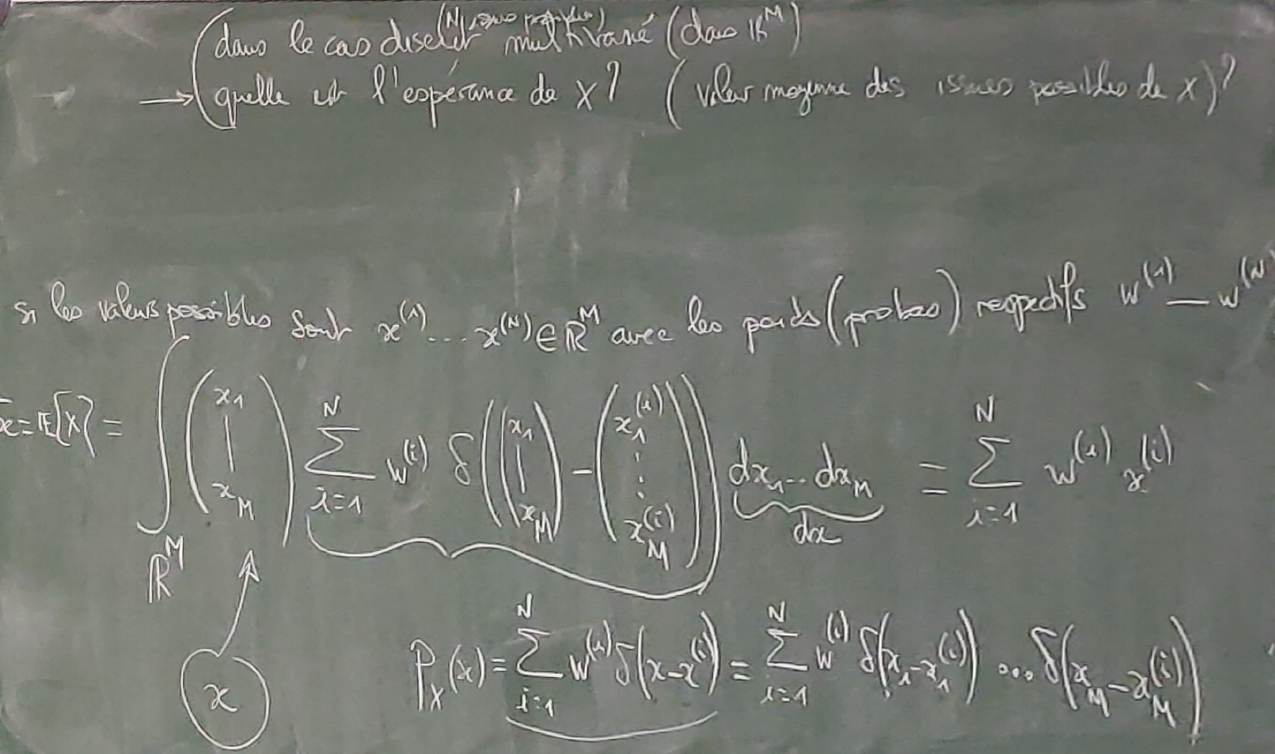 (N issues possibles)
dans le cas discret multivarié (dans ℝ^M)
→ quelle est l'espérance de X ? (valeur moyenne des issues possibles de X)?
si les valeurs possibles sont x^(1) ... x^(N) ∈ ℝ^M avec les poids (probas) respectifs w^(1) — w^(N)
x̄ = E[X] = ∫_{ℝ^M} (x_1 | x_M) ∑_{i=1}^N w^(i) δ((x_1 | x_M) - (x_1^(i) ⋮ x_M^(i))) dx_1 .. dx_M = ∑_{i=1}^N w^(i) x^(i)
dx
x
P_X(x) = ∑_{i=1}^N w^(i) δ(x - x^(i)) = ∑_{i=1}^N w^(i) δ(x_1 - x_1^(i)) ... δ(x_M - x_M^(i))